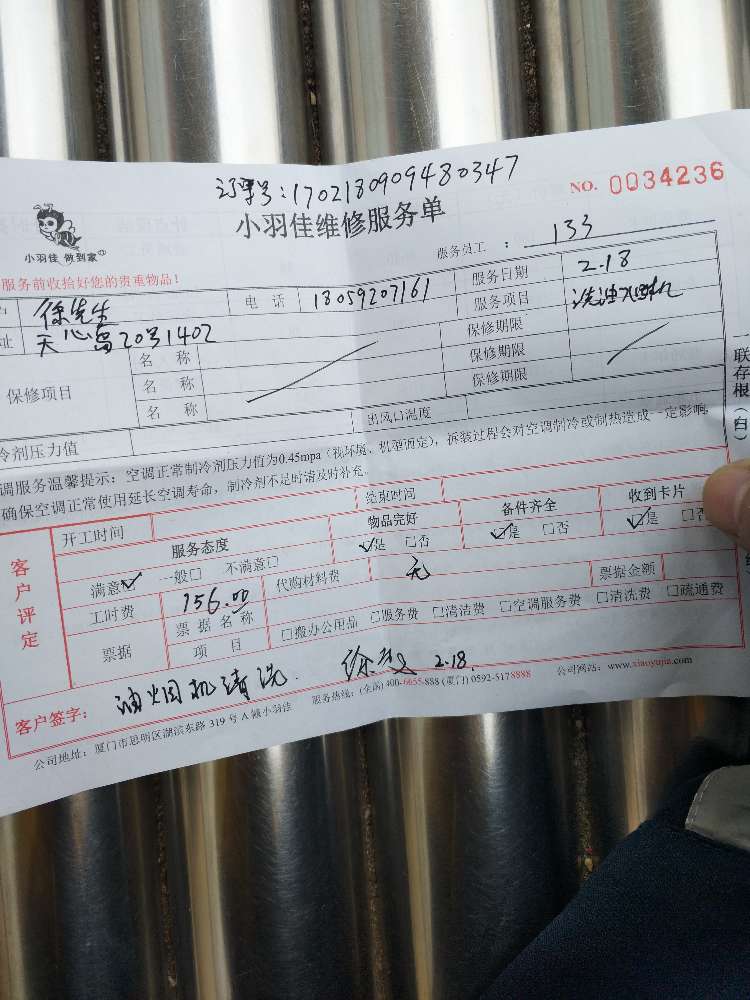 订单号:1702180909480347
NO. 0034236
小羽佳维修服务单
小羽佳 做到家
服务员工 : 133
服务前收拾好您的贵重物品!
徐先生 电 话 18059207161 服务日期 2.18
址 天心岛20号1402 服务项目 洗油烟机
保修项目 名 称 保修期限
名 称 保修期限
名 称 保修期限
冷剂压力值 出风口温度
调服务温馨提示:空调正常制冷剂压力值为0.45mpa(视环境、机型而定),拆装过程会对空调制冷或制热造成一定影响,
确保空调正常使用延长空调寿命,制冷剂不足时请及时补充。
联存根(白)
客户评定
开工时间 结束时间
服务态度 物品完好 备件齐全 收到卡片
满意☑ 一般□ 不满意□ ☑是 □否 ☑是 □否 ☑是 □否
工时费 156.00 代购材料费 元 票据金额
票据 票据名称
项 目 □搬办公用品 □服务费 □清洁费 □空调服务费 □清洗费 □疏通费
客户签字: 油烟机清洗. 2.18.
公司地址:厦门市思明区湖滨东路 319 号 A 幢小羽佳 服务热线:(全国) 400-6655-888 (厦门) 0592-5178888 公司网站:www.xiaoyujia.com